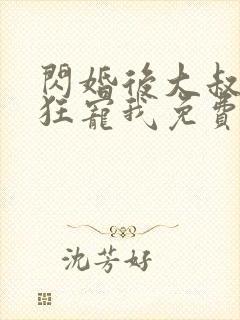 閃婚後大叔
狂寵我免費
沈芳好